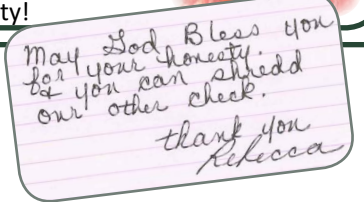 ty!
May God Bless you
for your honesty.
& you can shredd
our other check.
thank you
Rebecca